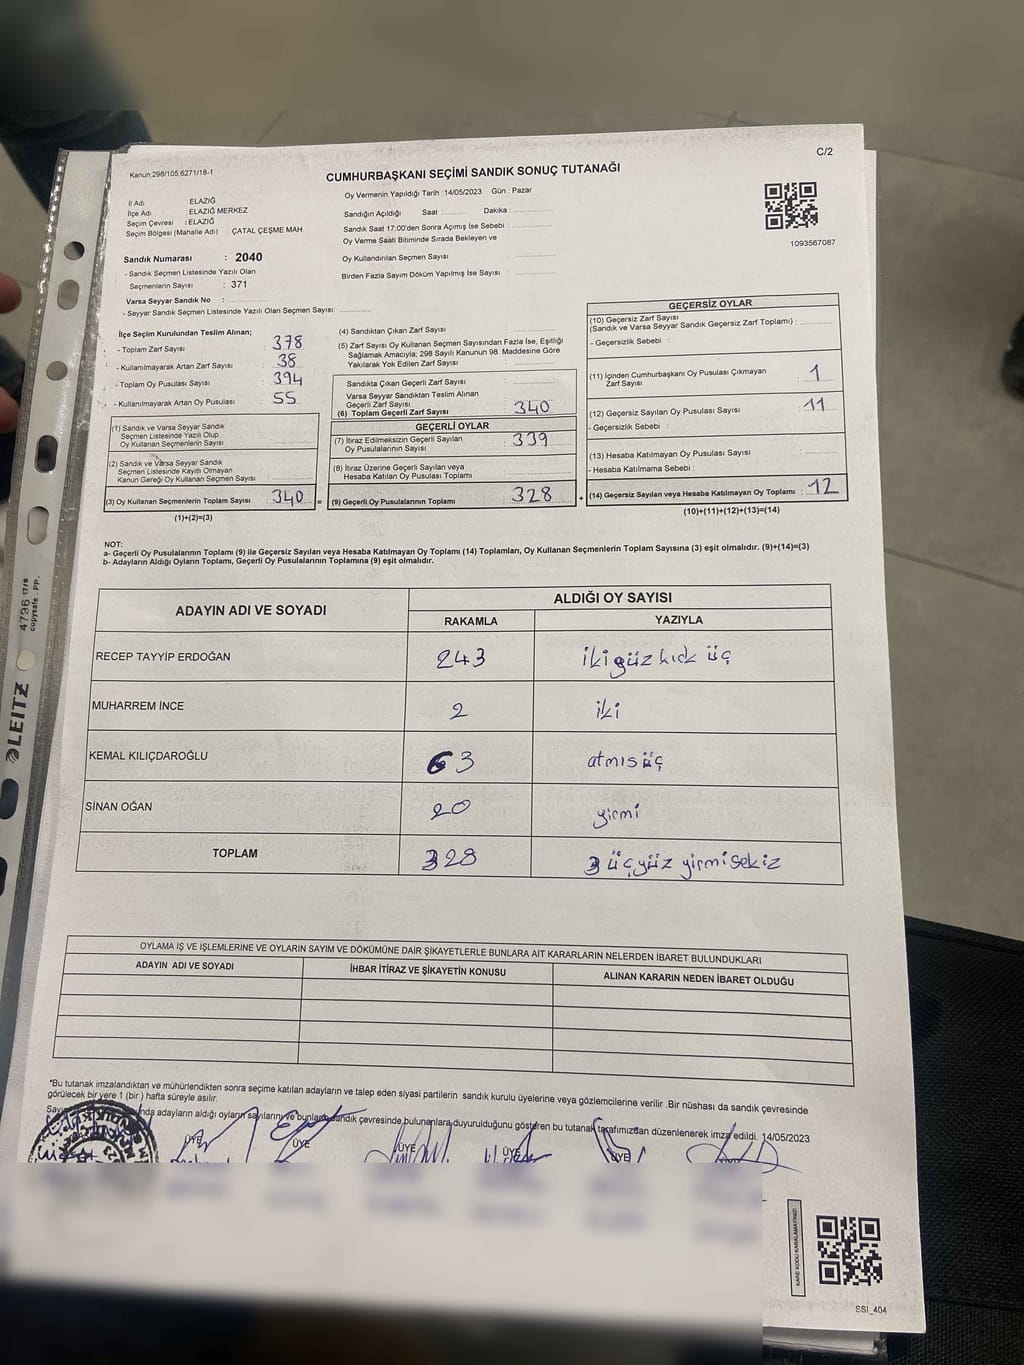 C/2
Kanun.298/105,6271/18-1
CUMHURBAŞKANI SEÇİMİ SANDIK SONUÇ TUTANAĞI
İl Adı : ELAZIĞ
İlçe Adı : ELAZIĞ MERKEZ
Seçim Çevresi : ELAZIĞ
Seçim Bölgesi (Mahalle Adı) : ÇATAL ÇEŞME MAH
Oy Vermenin Yapıldığı Tarih : 14/05/2023 Gün : Pazar
Sandığın Açıldığı Saat : Dakika :
Sandık Saat 17:00'den Sonra Açımış İse Sebebi :
Oy Verme Saati Bitiminde Sırada Bekleyen ve
Oy Kullandırılan Seçmen Sayısı :
Birden Fazla Sayım Döküm Yapılmış İse Sayısı :
1093567087
Sandık Numarası : 2040
- Sandık Seçmen Listesinde Yazılı Olan
Seçmenlerin Sayısı : 371
Varsa Seyyar Sandık No :
- Seyyar Sandık Seçmen Listesinde Yazılı Olan Seçmen Sayısı:
İlçe Seçim Kurulundan Teslim Alınan;
- Toplam Zarf Sayısı : 378
- Kullanılmayarak Artan Zarf Sayısı : 38
- Toplam Oy Pusulası Sayısı : 394
- Kullanılmayarak Artan Oy Pusulası : 55
(1) Sandık ve Varsa Seyyar Sandık
Seçmen Listesinde Yazılı Olup
Oy Kullanan Seçmenlerin Sayısı :
(2) Sandık ve Varsa Seyyar Sandık
Seçmen Listesinde Kayıtlı Olmayan
Kanun Gereği Oy Kullanan Seçmen Sayısı :
(3) Oy Kullanan Seçmenlerin Toplam Sayısı : 340 =
(1)+(2)=(3)
(4) Sandıktan Çıkan Zarf Sayısı :
(5) Zarf Sayısı Oy Kullanan Seçmen Sayısından Fazla İse, Eşitliği
Sağlamak Amacıyla; 298 Sayılı Kanunun 98. Maddesine Göre
Yakılarak Yok Edilen Zarf Sayısı :
Sandıkta Çıkan Geçerli Zarf Sayısı :
Varsa Seyyar Sandıktan Teslim Alınan
Geçerli Zarf Sayısı :
(6) Toplam Geçerli Zarf Sayısı : 340
GEÇERLİ OYLAR
(7) İtiraz Edilmeksizin Geçerli Sayılan
Oy Pusulasının Sayısı : 339
(8) İtiraz Üzerine Geçerli Sayılan veya
Hesaba Katılan Oy Pusulası Toplamı :
(9) Geçerli Oy Pusulalarının Toplamı : 328 +
GEÇERSİZ OYLAR
(10) Geçersiz Zarf Sayısı
(Sandık ve Varsa Seyyar Sandık Geçersiz Zarf Toplamı) :
- Geçersizlik Sebebi :
(11) İçinden Cumhurbaşkanı Oy Pusulası Çıkmayan
Zarf Sayısı : 1
(12) Geçersiz Sayılan Oy Pusulası Sayısı : 11
- Geçersizlik Sebebi :
(13) Hesaba Katılmayan Oy Pusulası Sayısı :
- Hesaba Katılmama Sebebi :
(14) Geçersiz Sayılan veya Hesaba Katılmayan Oy Toplamı : 12
(10)+(11)+(12)+(13)=(14)
NOT:
a- Geçerli Oy Pusulalarının Toplamı (9) ile Geçersiz Sayılan veya Hesaba Katılmayan Oy Toplamı (14) Toplamları, Oy Kullanan Seçmenlerin Toplam Sayısına (3) eşit olmalıdır. (9)+(14)=(3)
b- Adayların Aldığı Oyların Toplamı, Geçerli Oy Pusulalarının Toplamına (9) eşit olmalıdır.
ADAYIN ADI VE SOYADI
ALDIĞI OY SAYISI
RAKAMLA YAZIYLA
RECEP TAYYİP ERDOĞAN 243 ikiyüz kırk üç
MUHARREM İNCE 2 iki
KEMAL KILIÇDAROĞLU 63 atmış üç
SİNAN OĞAN 20 yirmi
TOPLAM 328 3 üçyüz yirmi sekiz
OYLAMA İŞ VE İŞLEMLERİNE VE OYLARIN SAYIM VE DÖKÜMÜNE DAİR ŞİKAYETLERLE BUNLARA AİT KARARLARIN NELERDEN İBARET BULUNDUKLARI
ADAYIN ADI VE SOYADI İHBAR İTİRAZ VE ŞİKAYETİN KONUSU ALINAN KARARIN NEDEN İBARET OLDUĞU
*Bu tutanak imzalandıktan ve mühürlendikten sonra seçime katılan adayların ve talep eden siyasi partilerin sandık kurulu üyelerine veya gözlemcilerine verilir .Bir nüshası da sandık çevresinde
görülecek bir yere 1 (bir ) hafta süreyle asılır.
Sayım nda adayların aldığı oyların sayılarını ve bunların sandık çevresinde bulunanlara duyurulduğunu gösteren bu tutanak tarafımızdan düzenlenerek imza edildi. 14/05/2023
ÜYE ÜYE ÜYE ÜYE ÜYE
KARE KODU KARALAMAYINIZ!
SSI_404
LEITZ
4796
copysafe . PP.